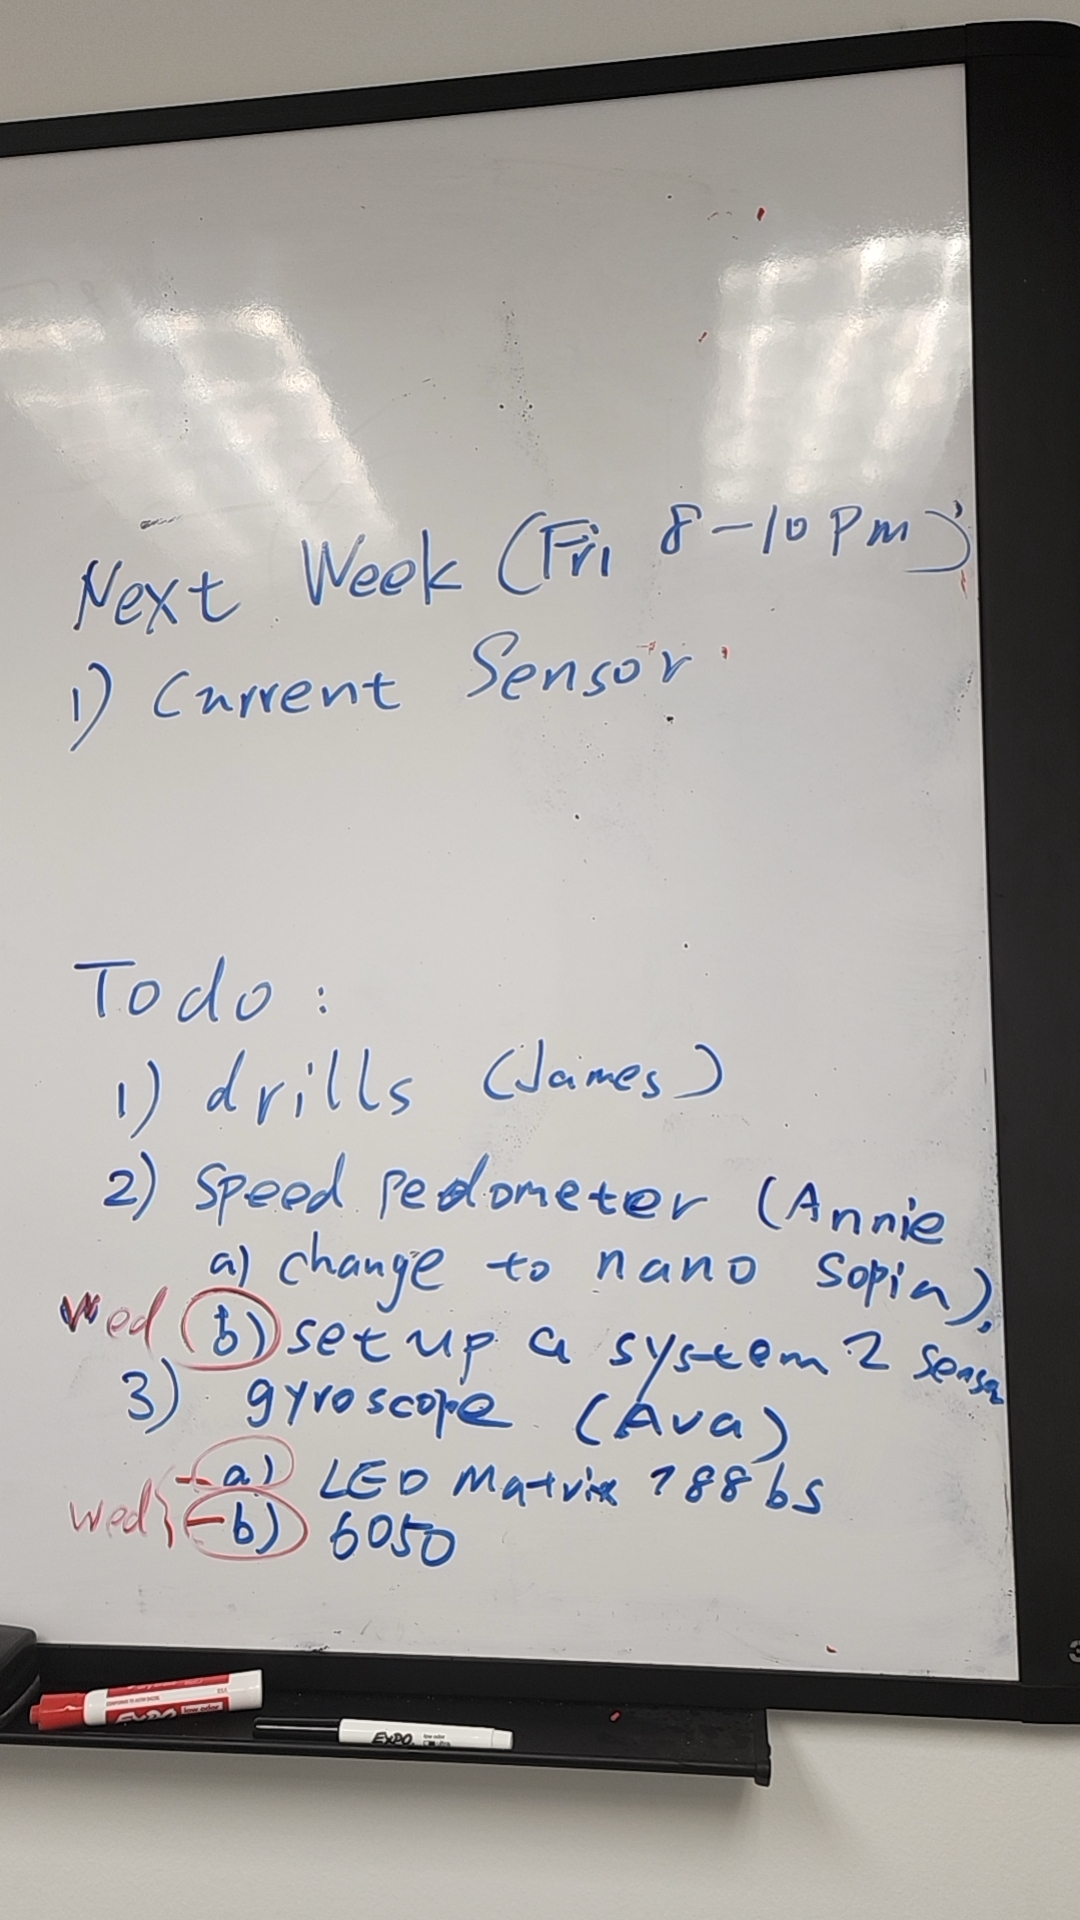 Next Week (Fri 8-10 pm)
1) Current Sensor
Todo :
1) drills (James)
2) Speed Pedometer (Annie
a) change to nano Sopia),
Wed b) set up a system 2 Sensor
3) gyroscope (Ava)
- a) LED Matrix 788bs
Wed { - b) 6050
EXPO low odor
EXPO low odor